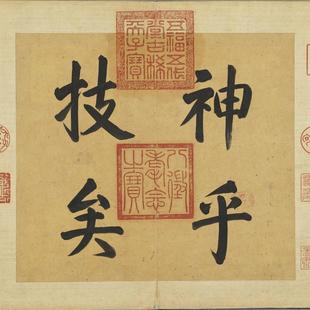 神乎
技矣
五福五代堂古稀天子寶
八徵耄念之寶